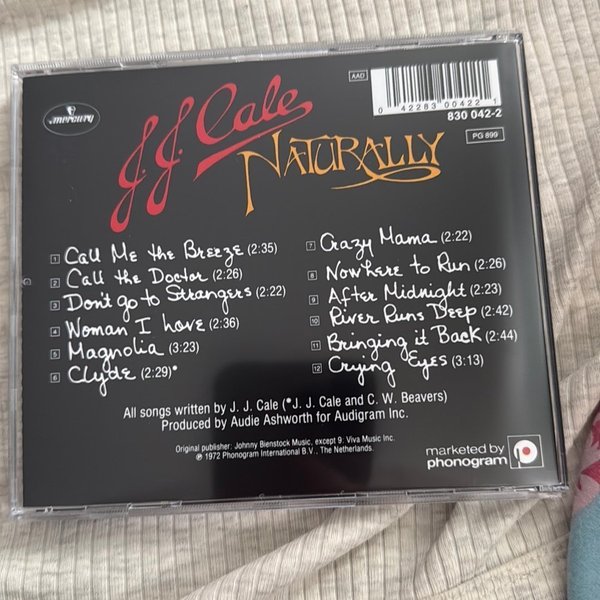 mercury
J.J. Cale
NATURALLY
AAD
0 42283 00422 1
830 042-2
PG 899
1 Call Me the Breeze (2:35)
2 Call the Doctor (2:26)
3 Don't go to Strangers (2:22)
4 Woman I Love (2:36)
5 Magnolia (3:23)
6 Clyde (2:29)*
7 Crazy Mama (2:22)
8 Nowhere to Run (2:26)
9 After Midnight (2:23)
10 River Runs Deep (2:42)
11 Bringing it Back (2:44)
12 Crying Eyes (3:13)
All songs written by J. J. Cale (*J. J. Cale and C. W. Beavers)
Produced by Audie Ashworth for Audigram Inc.
Original publisher: Johnny Bienstock Music, except 9: Viva Music Inc.
℗ 1972 Phonogram International B.V., The Netherlands.
marketed by
phonogram